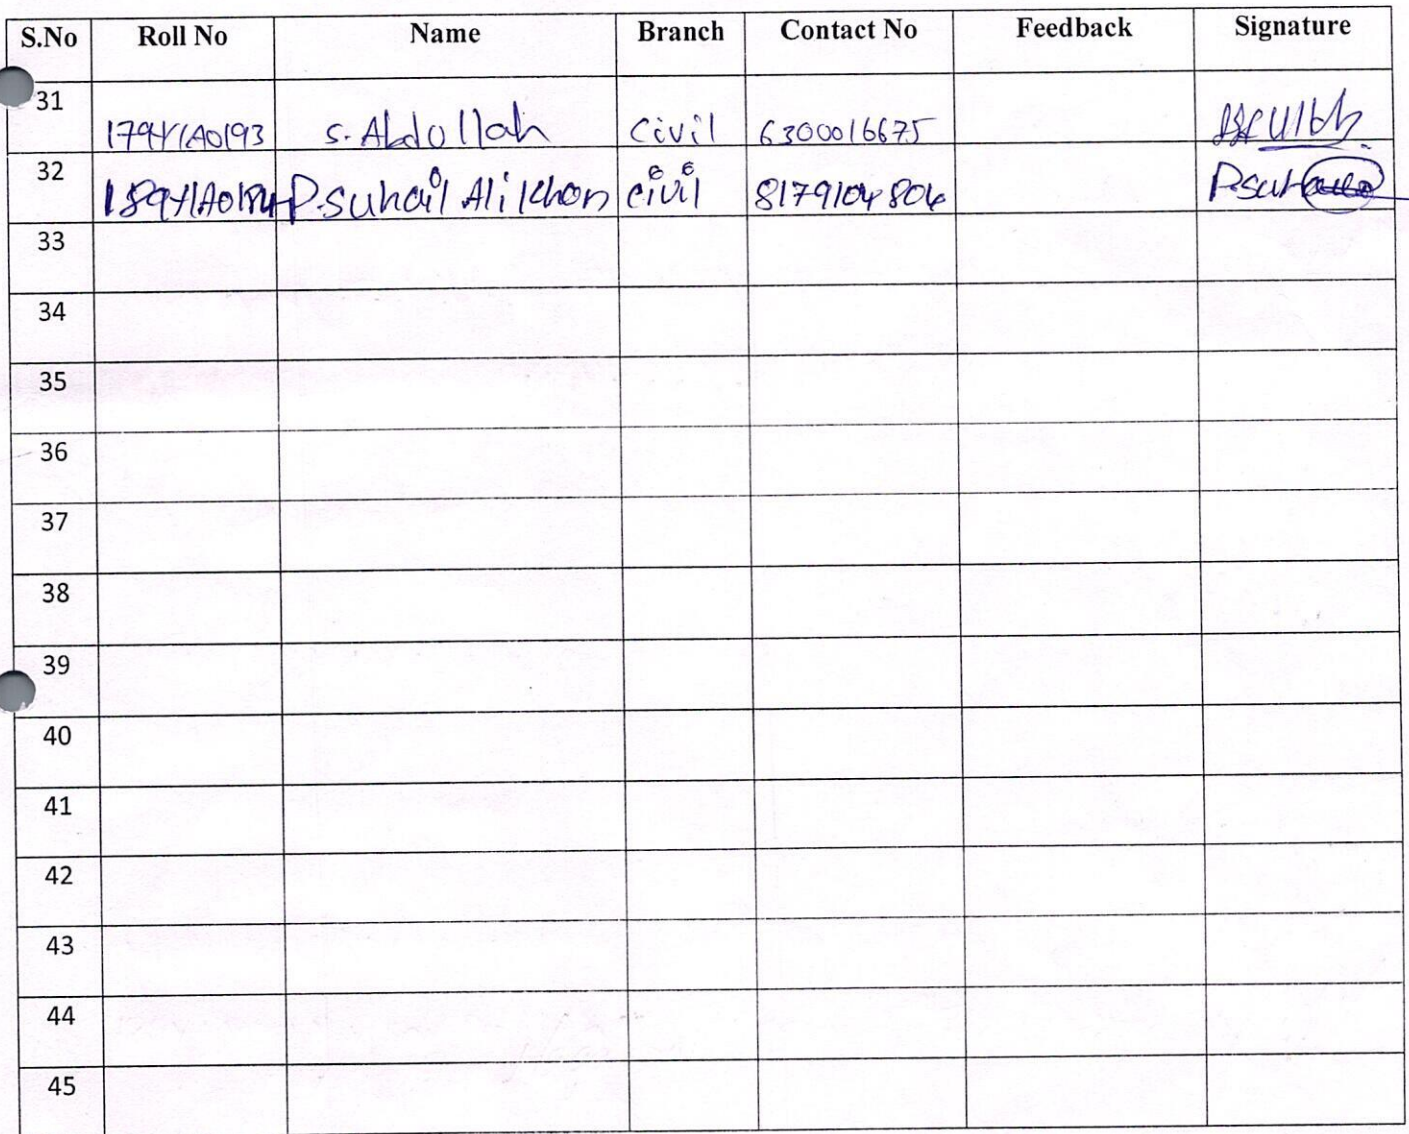 S.No Roll No Name Branch Contact No Feedback Signature
31 179Y1A0193 S. Abdullah Civil 6300016675
32 P.Suhail Ali Khan civil 8179104804
33
34
35
36
37
38
39
40
41
42
43
44
45